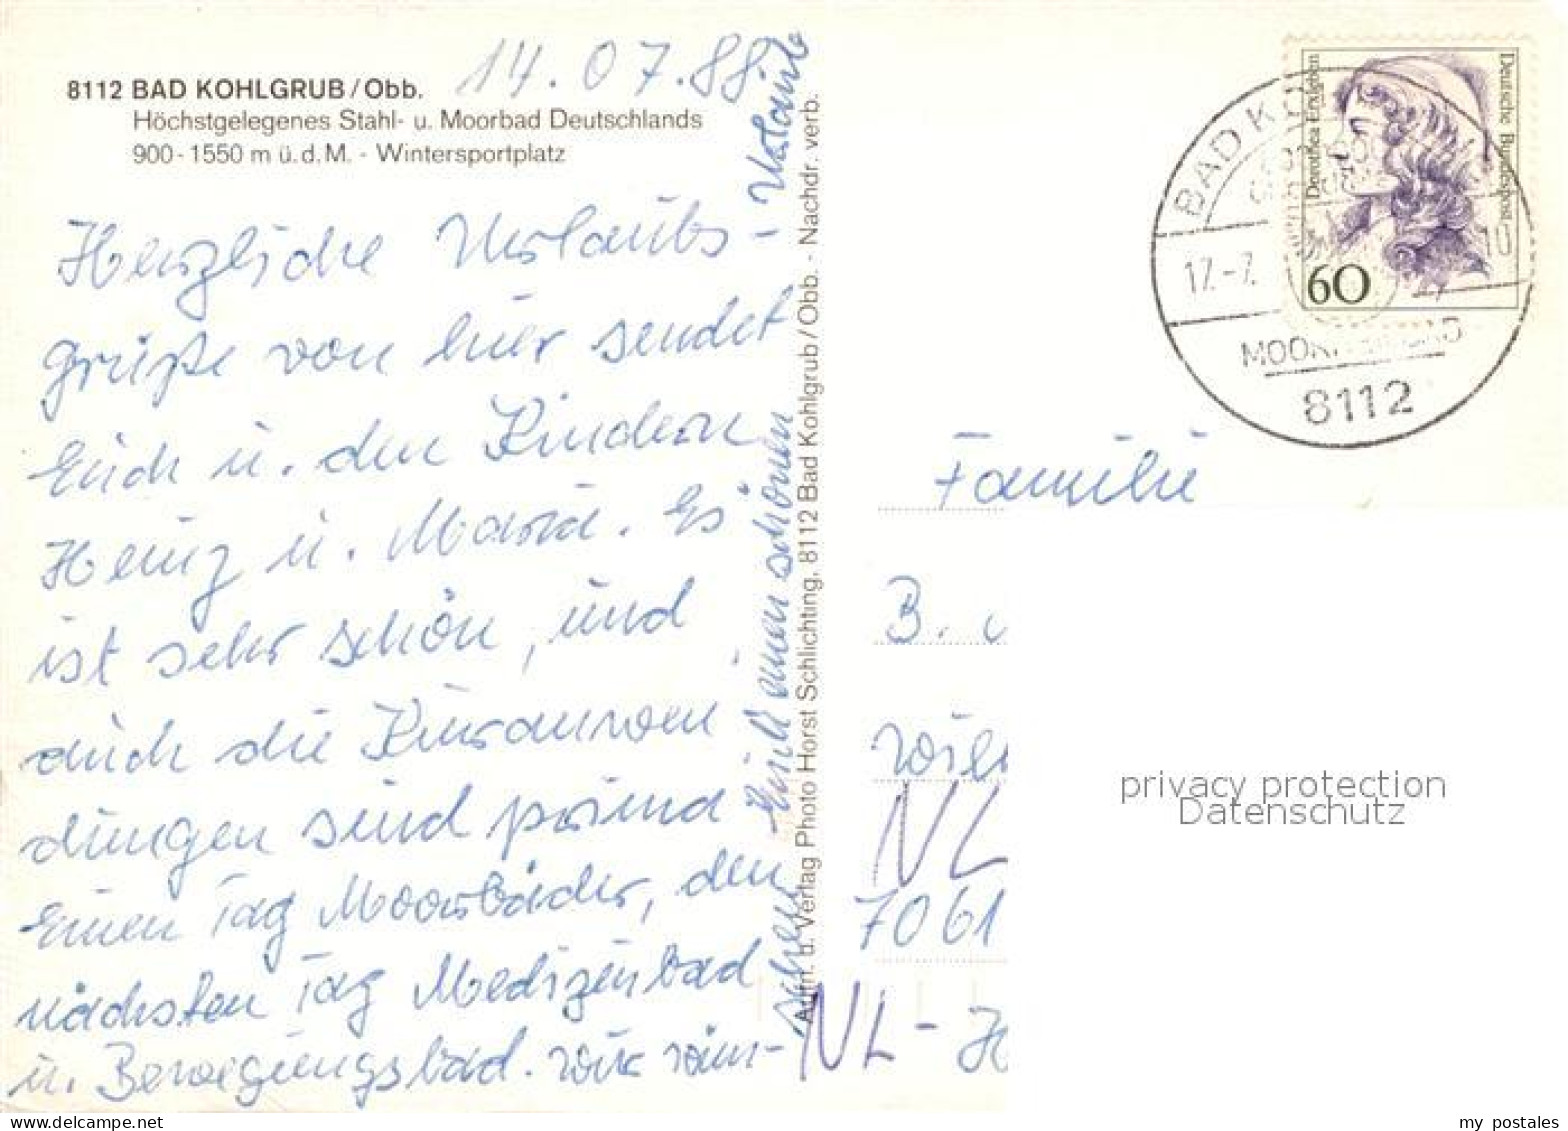 8112 BAD KOHLGRUB/Obb.
Höchstgelegenes Stahl- u. Moorbad Deutschlands
900-1550 m ü.d.M. - Wintersportplatz
14.07.88
Herzliche Urlaubs-
grüße von hier sendet
Euch u. den Kindern
Heinz u. Maria. Es
ist sehr schön, und
auch die Kuranwen
dungen sind prima
Einen Tag Moorbäder, den
nächsten Tag Medizenbad
u. Bewegungsbad. Wir wün-
schen Euch einen schönen Urlaub
Aufn. u. Verlag Photo Horst Schlichting, 8112 Bad Kohlgrub/Obb. - Nachdr. verb.
Deutsche Bundespost
Dorothea Erxleben
60
BAD KO
17.-7.
10
8112
Familie
B.
NL
7061
NL-H
privacy protection
Datenschutz
my postales